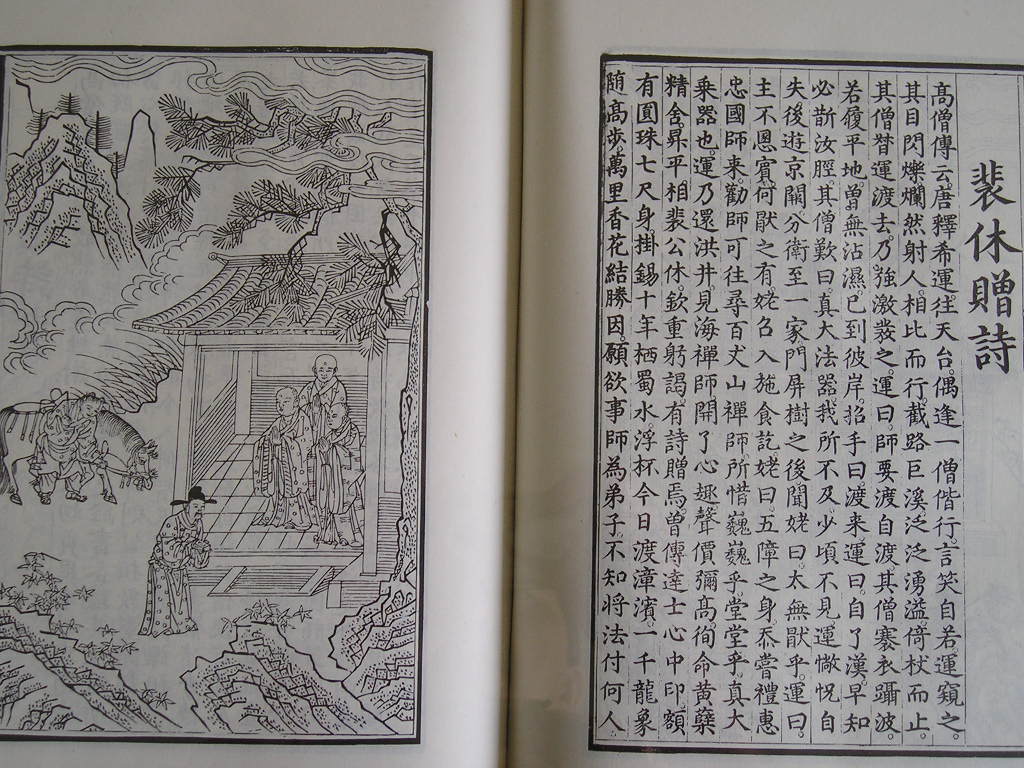 裴休贈詩
高僧傳云唐釋希運往天台偶逢一僧偕行言笑自若運窺之
其目閃爍爛然射人相比而行截路巨溪泛泛湧溢倚杖而止
其僧督運渡去乃強激發之運曰師要渡自渡其僧褰衣躡波
若履平地曾無沾濕已到彼岸招手曰渡來運曰自了漢早知
必斮汝脛其僧歎曰真大法器我所不及少頃不見運憮怳自
失後遊京闕分衛至一家門屏樹之後聞姥曰太無猒乎運曰
主不恩賓何猒之有姥召入施食訖姥曰五障之身忝嘗禮惠
忠國師來勸師可往尋百丈山禪師所惜巍巍乎堂堂乎真大
乘器也運乃還洪井見海禪師開了心趣聲價彌高徇命黃蘗
精舍昇平相裴公休欽重躬謁有詩贈焉曾傳達士心中印額
有圓珠七尺身掛錫十年栖蜀水浮杯今日渡漳濱一千龍象
隨高步萬里香花結勝因願欲事師為弟子不知將法付何人